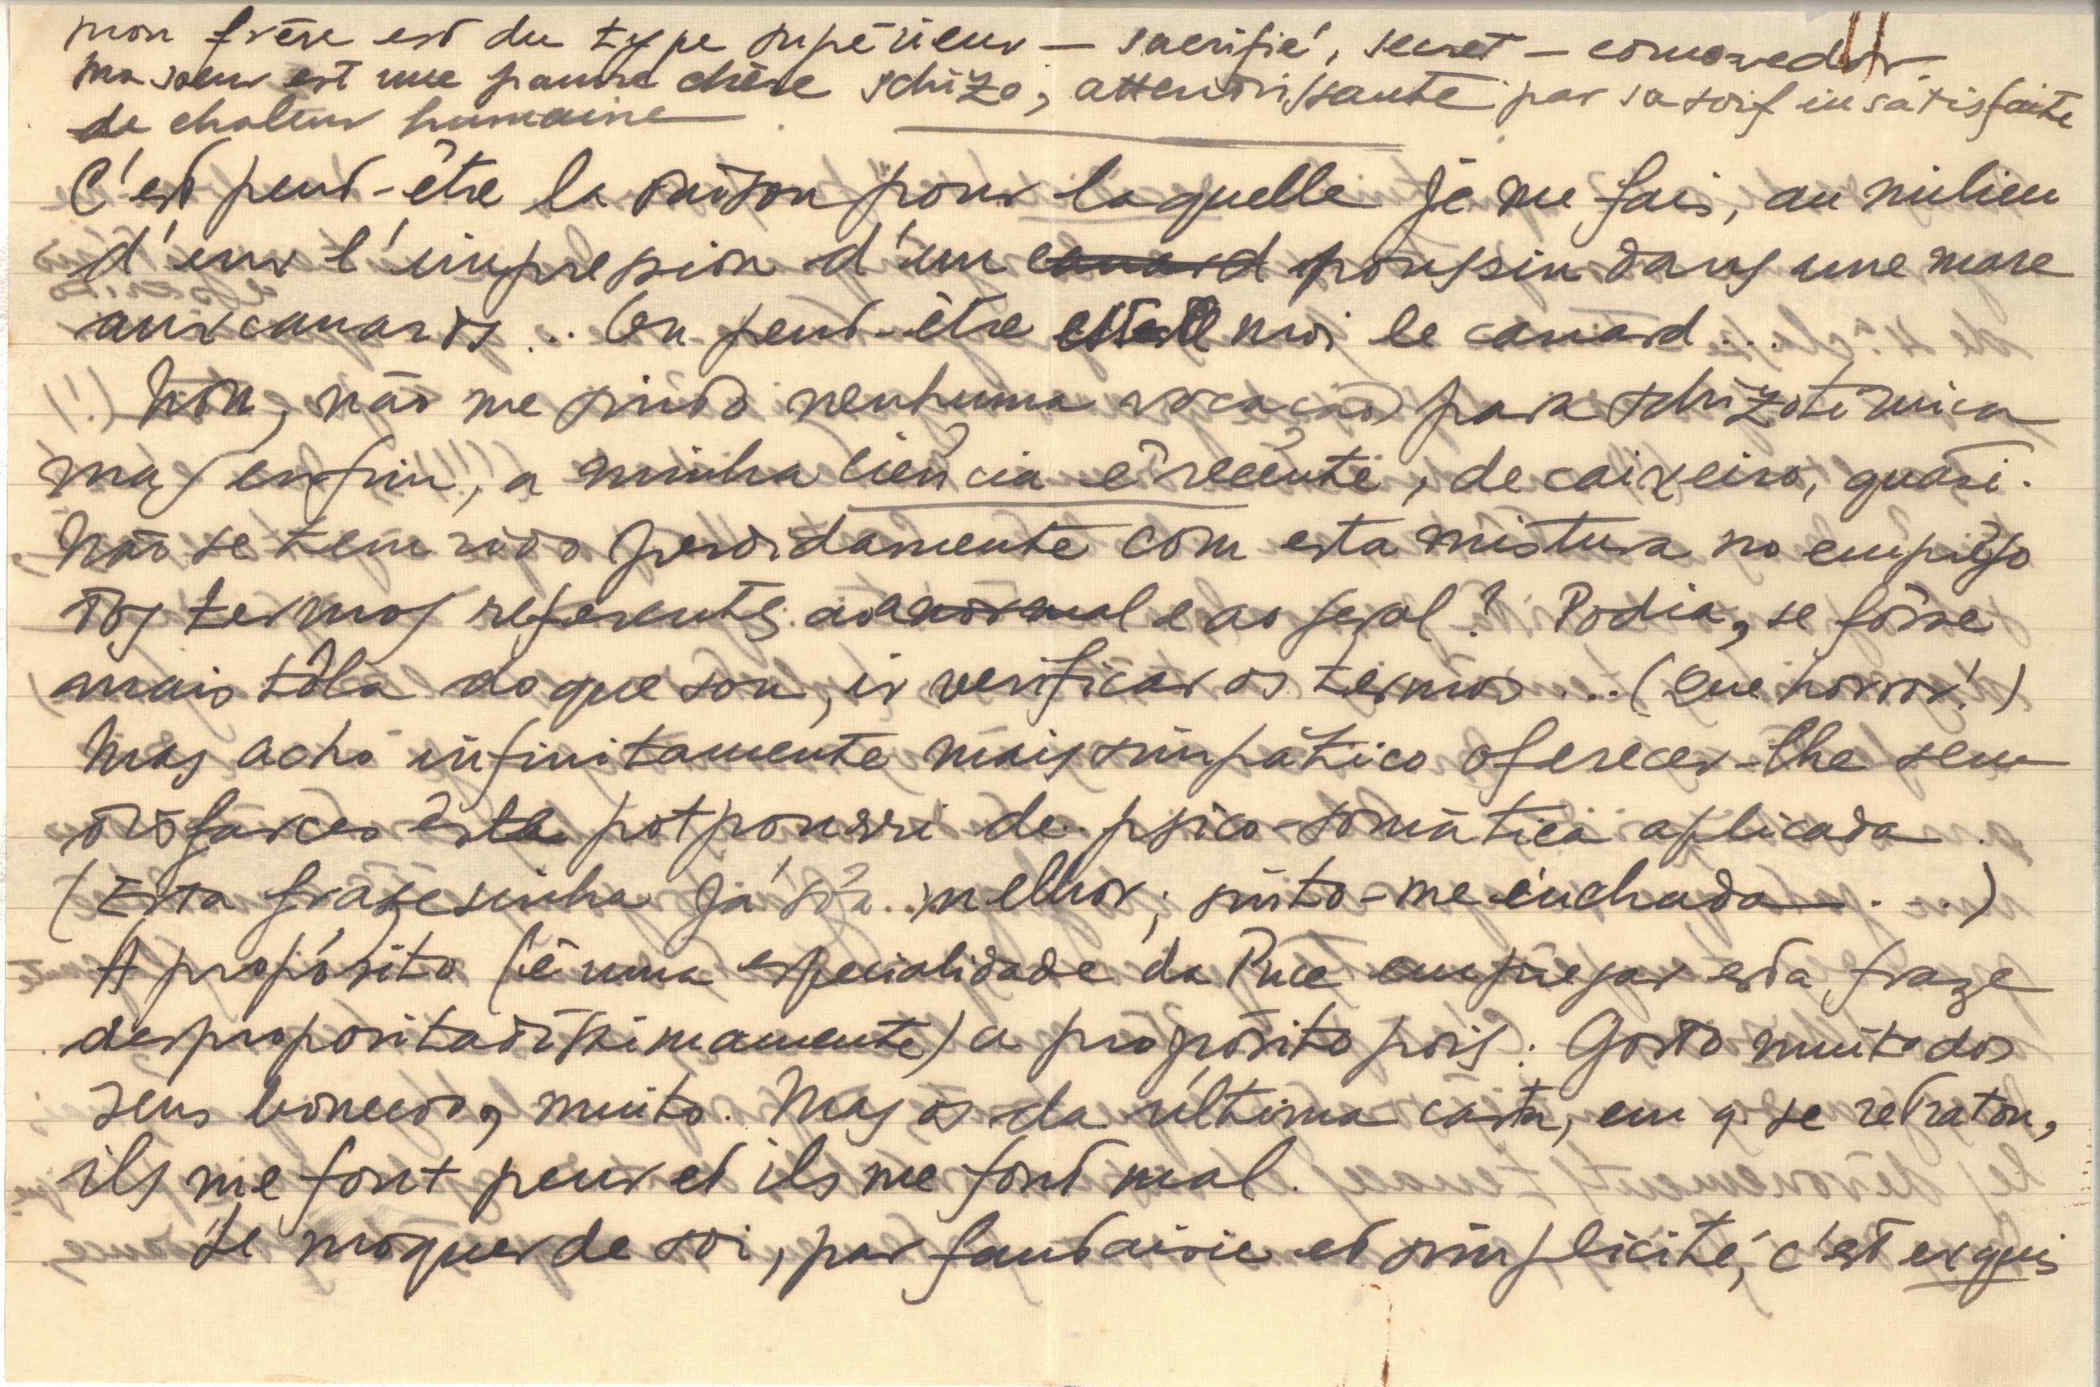 mon frère est du type supérieur — sacrifié, secret — comovedor.
ma soeur est une pauvre chère schizo, attendrissante par sa soif insatisfaite
de chaleur humaine.
C'est peut-être la raison pour laquelle je me fais, au milieu
d'eux l'impression d'un canard poussin dans une mare
aux canards... Ou peut-être moi le canard...
Non, não me sinto nenhuma vocação para schizotímica
mas enfim, a minha ciência é recente, de caixeiro, quási.
Não se tem rido perdidamente com esta mistura no emprêgo
dos termos referentes ao anormal e ao geral? Podia, se fôsse
mais tôla do que sou, ir verificar os termos... (Que horror!)
Mas acho infinitamente mais simpático oferecer-lhe sem
disfarces êste potpourri de psico-somática aplicada.
(Esta frasesinha já stá melhor; sinto-me inchada...)
A propósito (é uma especialidade da Puce empregar esta fraze
despropositadíssimamente) a propósito pois: Gosto muito dos
seus bonecos, muito. Mas os da última carta, em q. se retratou,
ils me font peur et ils me font mal.
Se moquer de soi, par fantaisie et simplicité, c'est exquis